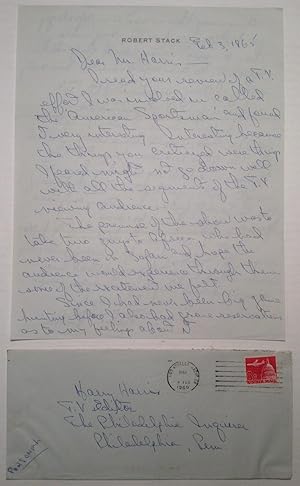 ROBERT STACK
Feb 3, 1965
Dear Mr. Harris –
I read your review of a T.V.
effort I was involved in called
the "American Sportsman" and found
it very interesting. Interesting because
the things you criticized were things
I feared might not go down well
with all the segments of the T.V
viewing audience.
The premise of the show was to
take two guys to Africa who had
never been on Safari and hope the
audience would experience through them
some of the excitement we felt.
Since I had never been big game
hunting before I also had grave reservations
as to my feelings about it
1965
Harry Harris
T.V. Editor
The Philadelphia Inquirer
Philadelphia, Penn